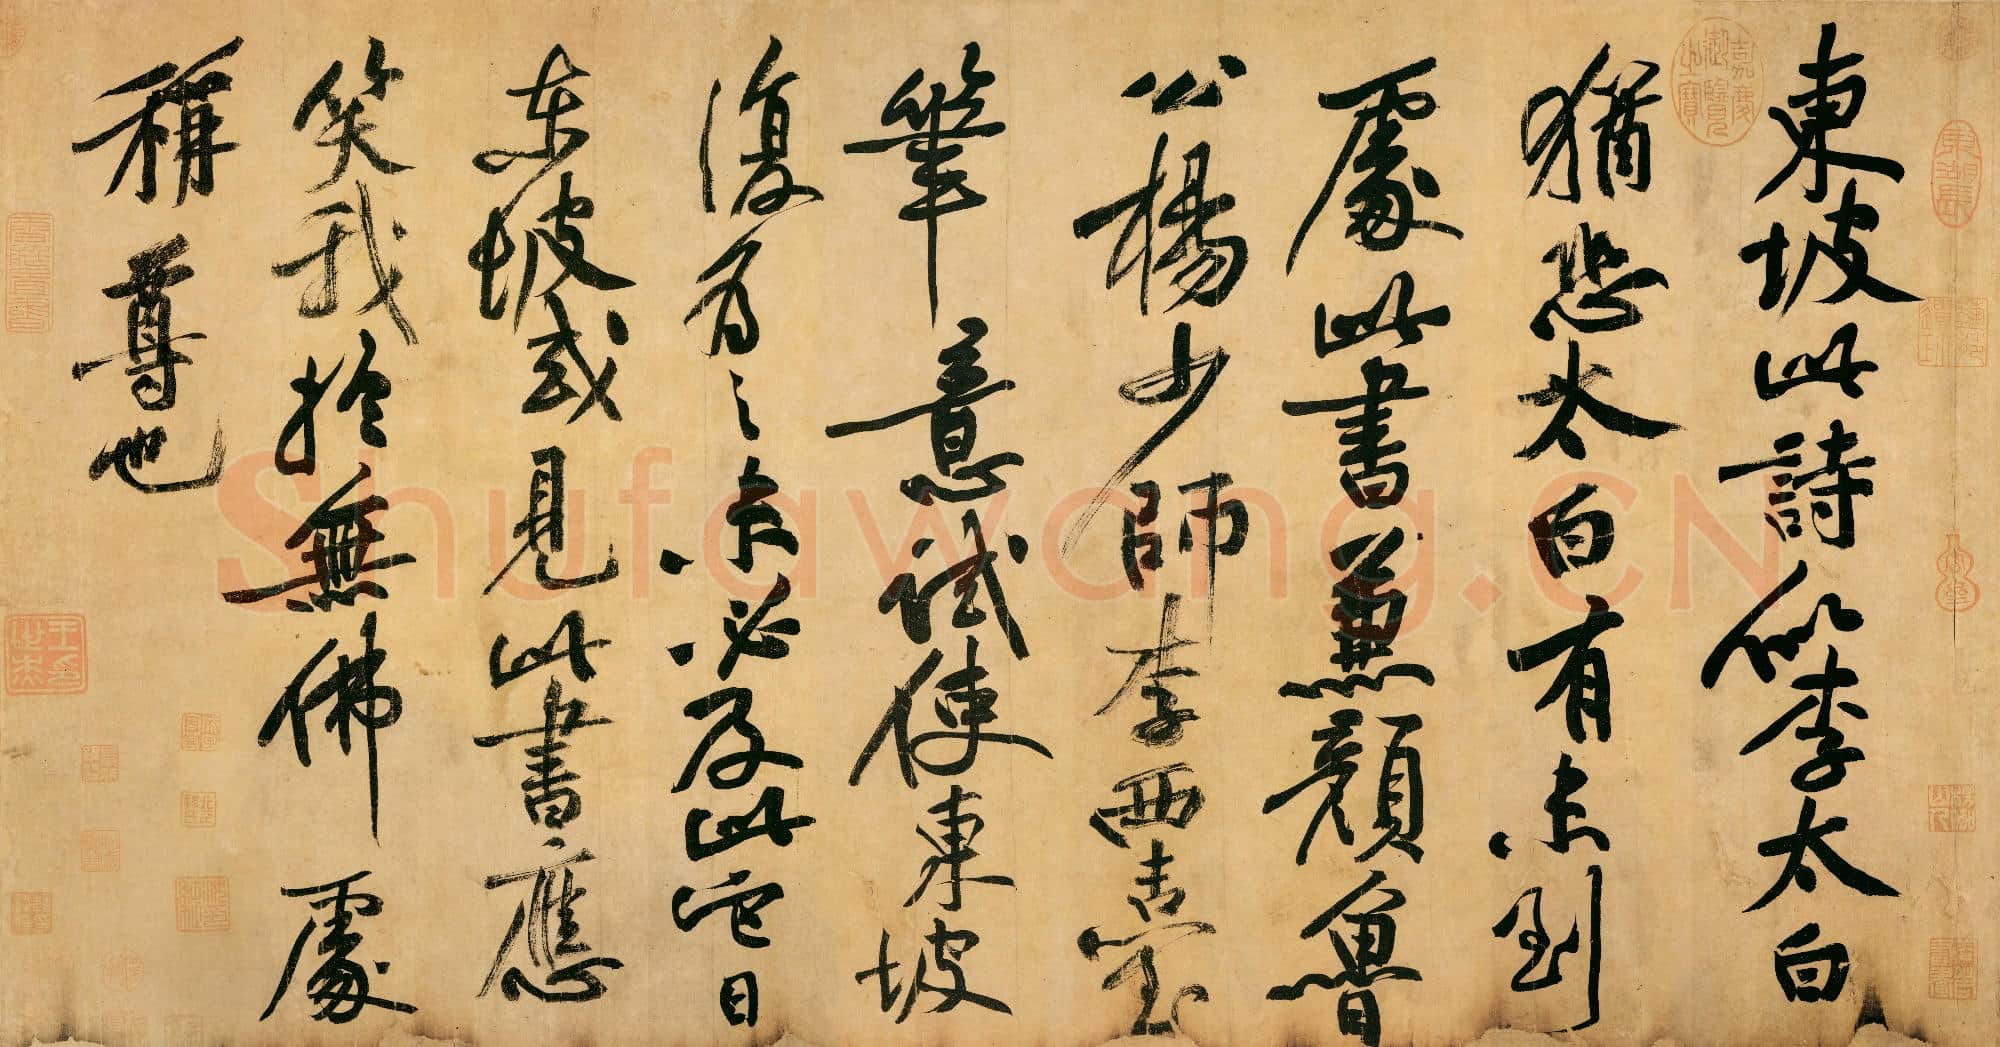 東坡此詩似李太白
猶恐太白有未到
處此書兼顔魯
公楊少師李西臺
筆意試使東坡
復為之未必及此它日
東坡或見此書應
笑我於無佛處
稱尊也
嘉慶御覽之寶
Shufawang.CN